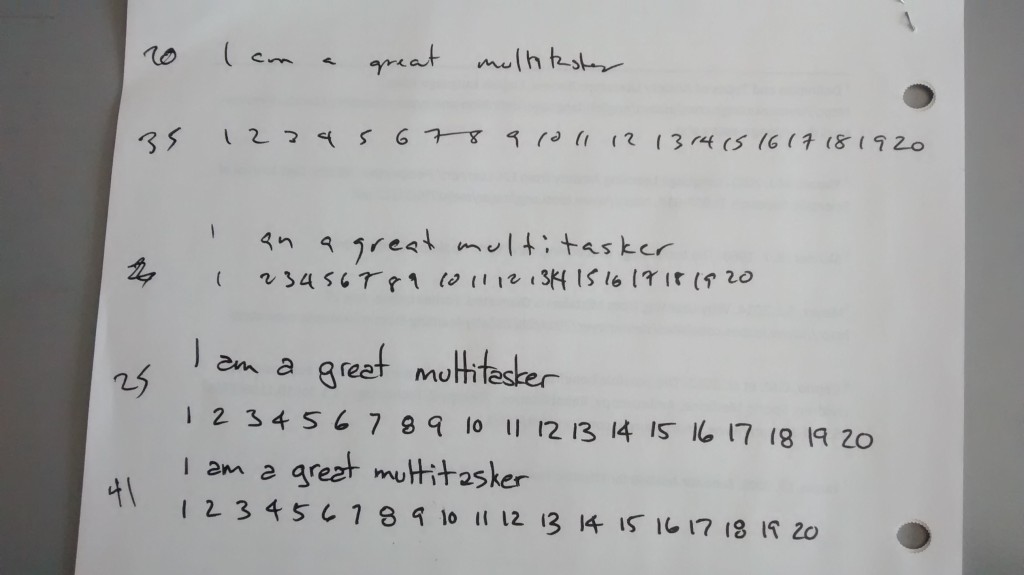 20 I am a great multitasker
35 1 2 3 4 5 6 7 8 9 10 11 12 13 14 15 16 17 18 19 20
I an a great multitasker
1 2 3 4 5 6 7 8 9 10 11 12 13 14 15 16 17 18 19 20
I am a great multitasker
25
1 2 3 4 5 6 7 8 9 10 11 12 13 14 15 16 17 18 19 20
I am a great multitasker
41
1 2 3 4 5 6 7 8 9 10 11 12 13 14 15 16 17 18 19 20